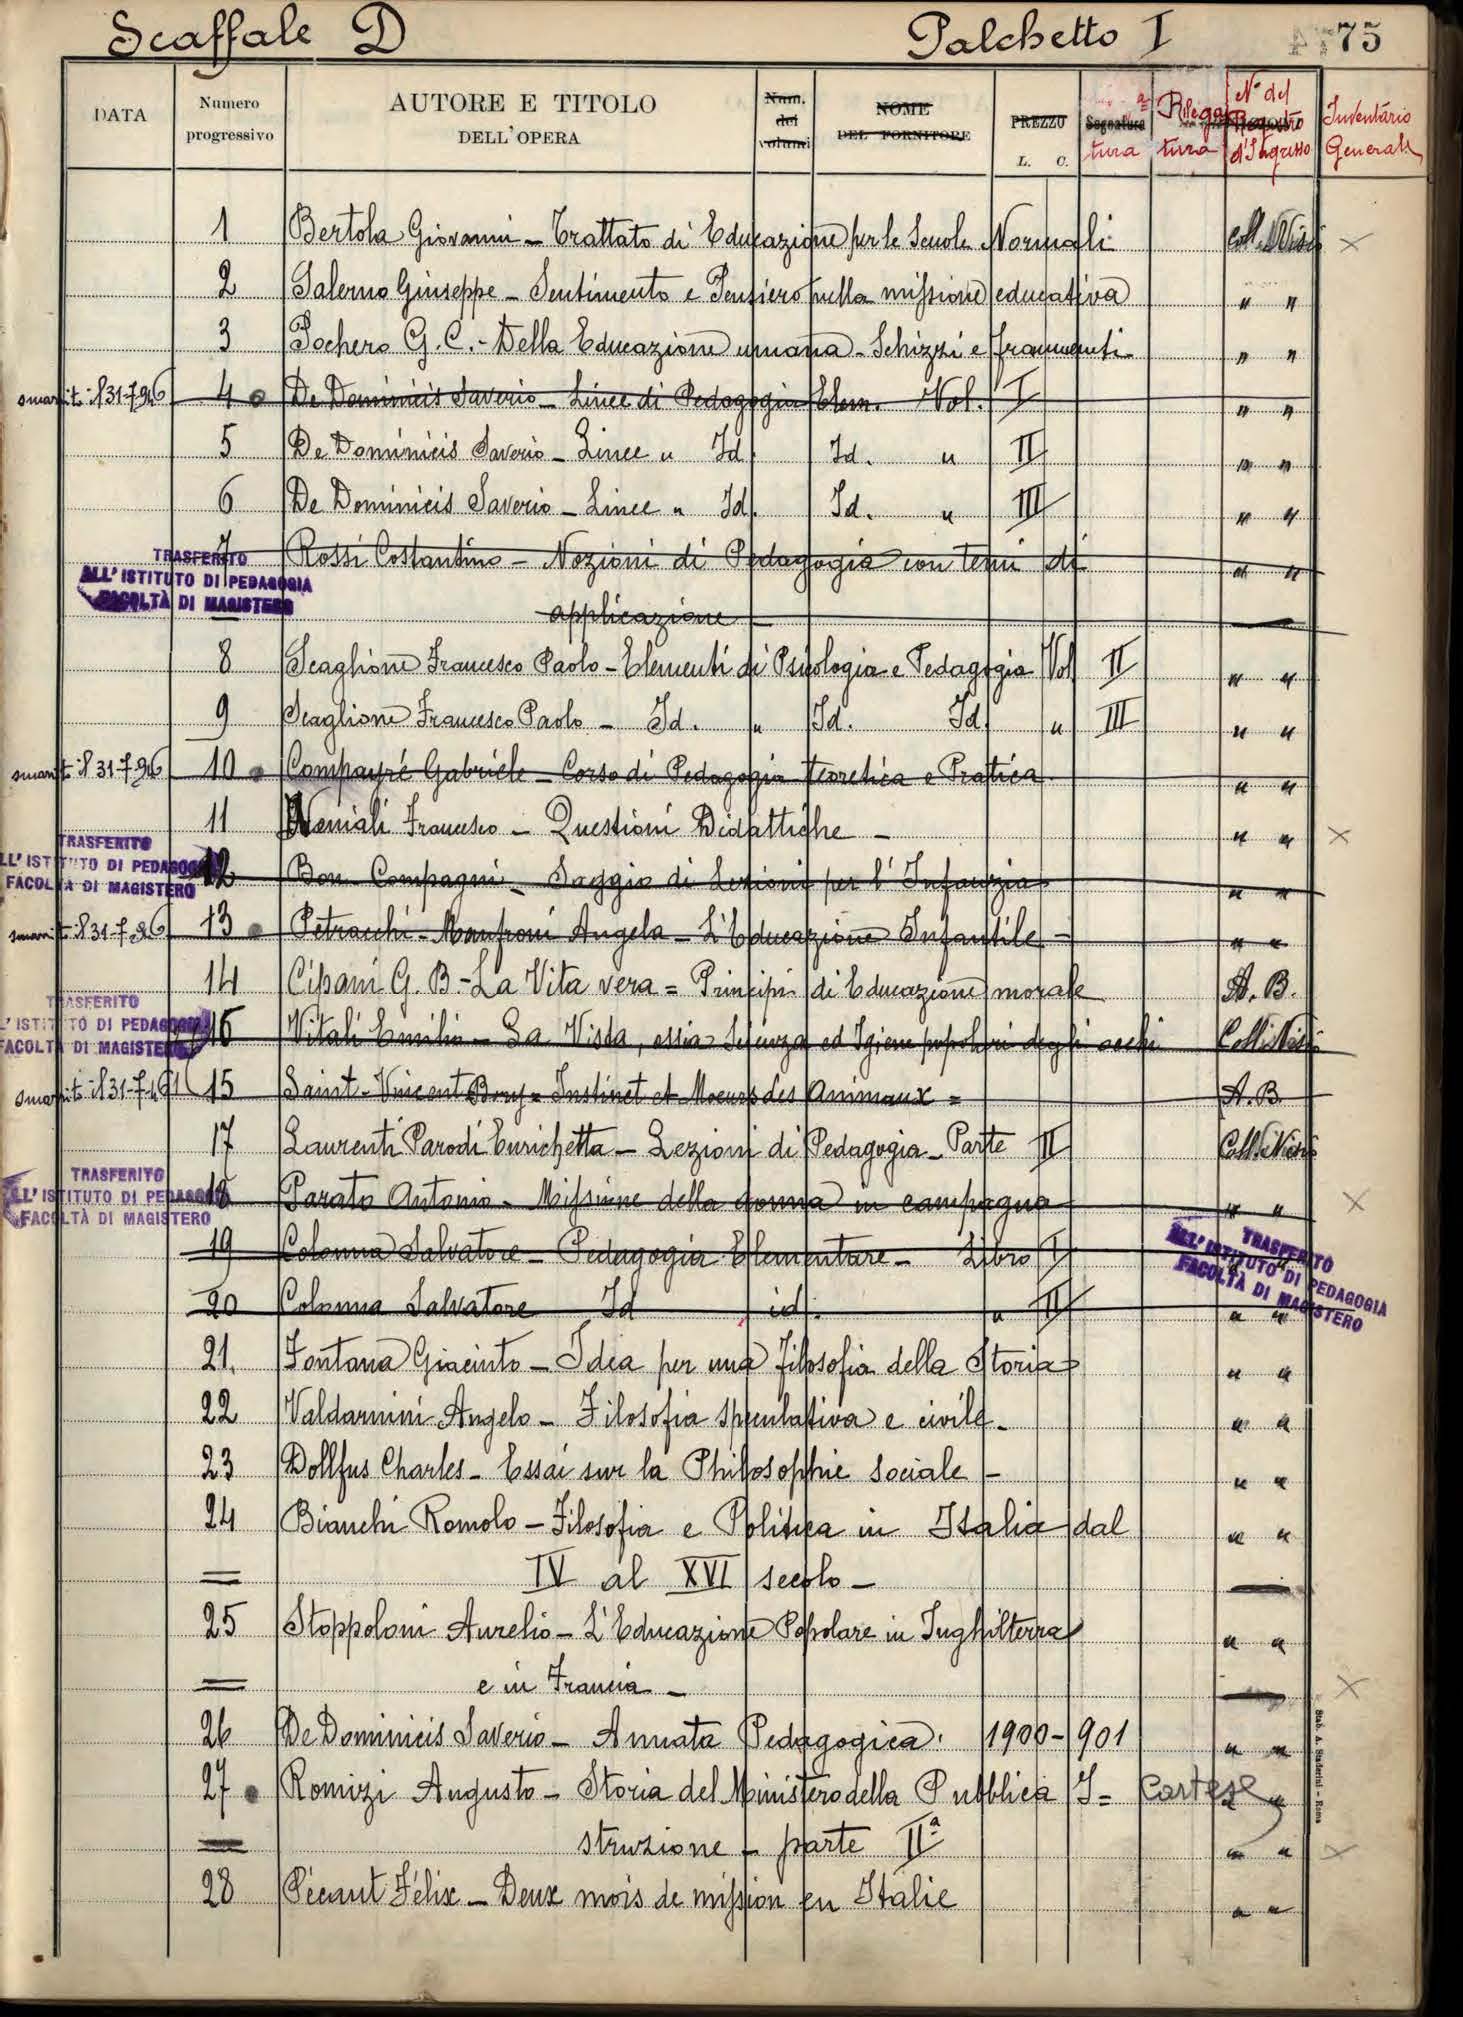 Scaffale D Palchetto I 75
DATA Numero progressivo AUTORE E TITOLO DELL'OPERA Num. dei volumi NOME DEL FORNITORE PREZZO L. C. Segnatura Rilegatura N° del Registro d'Ingresso Inventario Generale
1 Bertola Giovanni - Trattato di Educazione per le Scuole Normali
2 Salerno Giuseppe - Sentimento e Pensiero nella missione educativa " "
3 Pochero G. C. - Della Educazione umana - Schizzi e frammenti " "
smarrito il 31-7-946 4 De Dominicis Saverio - Linee di Pedagogia Elem. Vol. I " "
5 De Dominicis Saverio - Linee " Id. Id. " II " "
6 De Dominicis Saverio - Linee " Id. Id. " III " "
7 Rossi Costantino - Nozioni di Pedagogia con temi di " "
TRASFERITO
ALL'ISTITUTO DI PEDAGOGIA
FACOLTÀ DI MAGISTERO
applicazione -
8 Scaglione Francesco Paolo - Elementi di Psicologia e Pedagogia Vol II " "
9 Scaglione Francesco Paolo - Id. " Id. Id. " III " "
smarrito il 31-7-946 10 Compayré Gabriele - Corso di Pedagogia teoretica e Pratica " "
11 Veniali Francesco - Questioni Didattiche - " "
TRASFERITO
ALL'ISTITUTO DI PEDAGOGIA
FACOLTÀ DI MAGISTERO
12 Bon Compagni - Saggio di Lezioni per l'Infanzia " "
smarrito il 31-7-946 13 Petracchi-Manfroni Angela - L'Educazione Infantile - " "
14 Cipani G. B. - La Vita vera = Principi di Educazione morale A. B.
TRASFERITO
ALL'ISTITUTO DI PEDAGOGIA
FACOLTÀ DI MAGISTERO
16 Vitali Emilio - La Vista, ossia Scienza ed Igiene popolari degli occhi
smarrito il 31-7-46 15 Saint-Vincent Bory = Instinct et Moeurs des Animaux = A. B.
17 Laurenti Parodi Enrichetta - Lezioni di Pedagogia - Parte II
TRASFERITO
ALL'ISTITUTO DI PEDAGOGIA
FACOLTÀ DI MAGISTERO
18 Parato Antonio - Missione della donna in campagna " "
19 Colonna Salvatore - Pedagogia Elementare - Libro I " "
20 Colonna Salvatore Id id. " II " "
TRASFERITO
ALL'ISTITUTO DI PEDAGOGIA
FACOLTÀ DI MAGISTERO
21. Fontana Giacinto - Idea per una filosofia della Storia " "
22 Valdarnini Angelo - Filosofia speculativa e civile - " "
23 Dollfus Charles - Essai sur la Philosophie sociale - " "
24 Bianchi Romolo - Filosofia e Politica in Italia dal " "
IV al XVI secolo -
25 Stoppoloni Aurelio - L'Educazione Popolare in Inghilterra " "
e in Francia -
26 De Dominicis Saverio - Annata Pedagogica. 1900-901 " "
27 Romizi Augusto - Storia del Ministero della Pubblica I= Cortese " "
struzione - parte IIª " "
28 Pécaut Félix - Deux mois de mission en Italie " "
Stab. A. Staderini - Roma